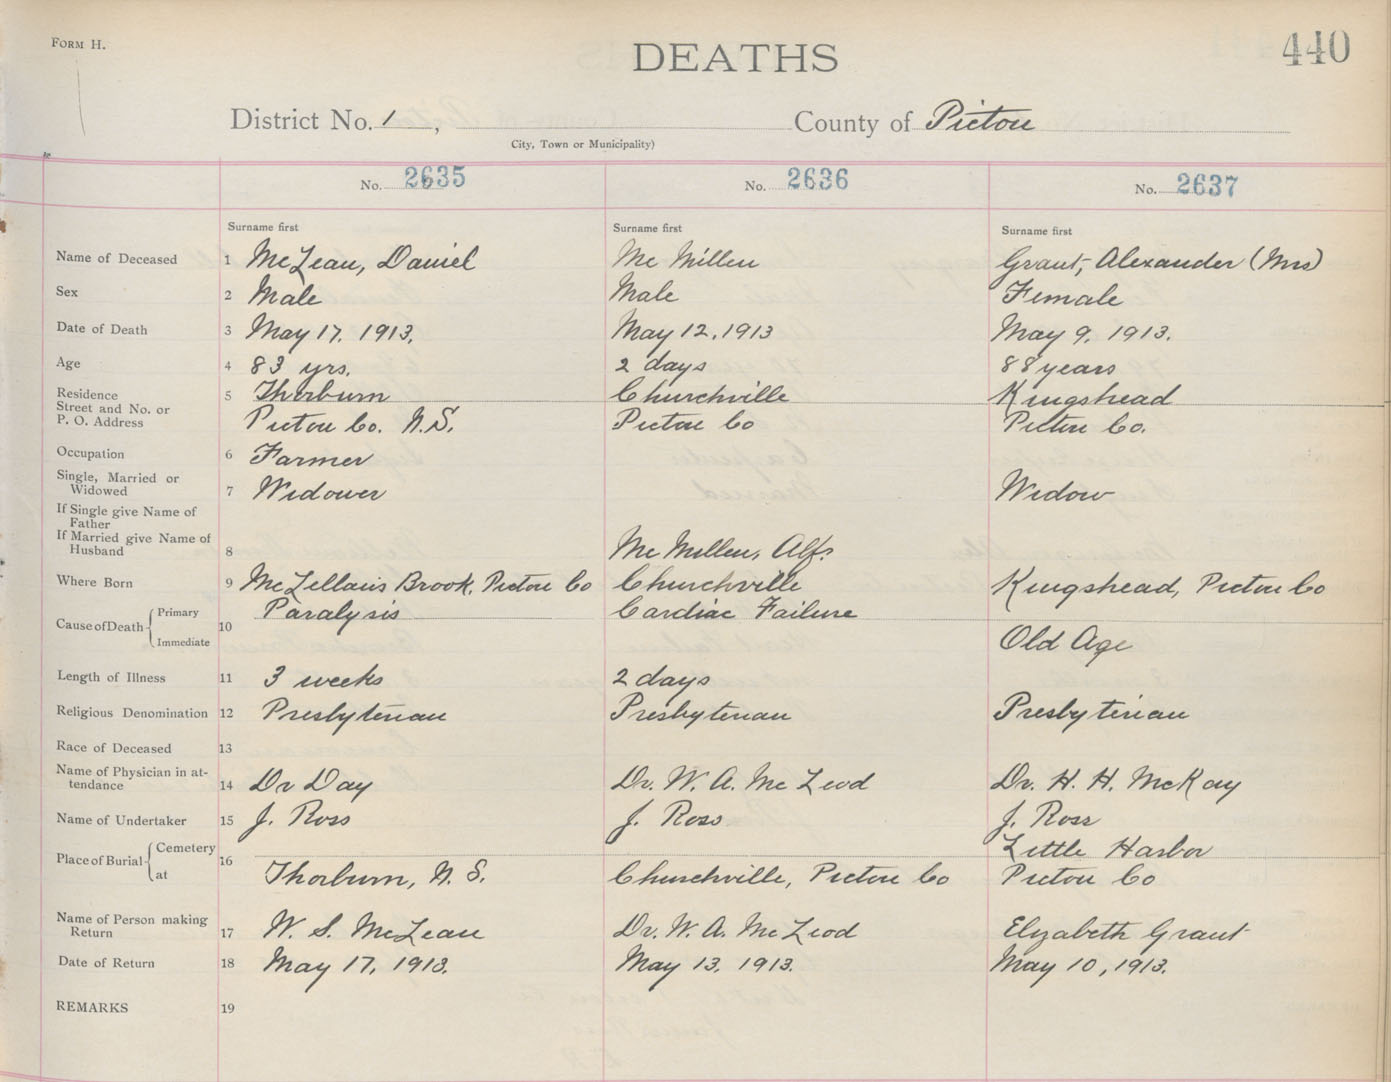 FORM H.
DEATHS
440
District No. 1 , County of Pictou
City, Town or Municipality)
No. 2635 No. 2636 No. 2637
Surname first Surname first Surname first
Name of Deceased 1 McLean, Daniel Mc Millen Grant, Alexander (Mrs)
Sex 2 Male Male Female
Date of Death 3 May 17, 1913. May 12, 1913 May 9, 1913.
Age 4 83 yrs. 2 days 88 years
Residence 5 Thorburn Churchville Kingshead
Street and No. or
P. O. Address Pictou Co. N.S. Pictou Co Pictou Co.
Occupation 6 Farmer
Single, Married or
Widowed 7 Widower Widow
If Single give Name of
Father
If Married give Name of
Husband 8 Mc Millen, Alf.
Where Born 9 McLellan's Brook, Pictou Co Churchville Kingshead, Pictou Co
Cause of Death Primary 10 Paralysis Cardiac Failure
Immediate Old Age
Length of Illness 11 3 weeks 2 days
Religious Denomination 12 Presbyterian Presbyterian Presbyterian
Race of Deceased 13
Name of Physician in at-
tendance 14 Dr Day Dr. W. A. Mc Leod Dr. H. H. McKay
Name of Undertaker 15 J. Ross J. Ross J. Ross
Place of Burial Cemetery 16 Little Harbor
at Thorburn, N. S. Churchville, Pictou Co Pictou Co
Name of Person making
Return 17 W. S. McLean Dr. W. A. Mc Leod Elizabeth Grant
Date of Return 18 May 17, 1913. May 13, 1913. May 10, 1913.
REMARKS 19